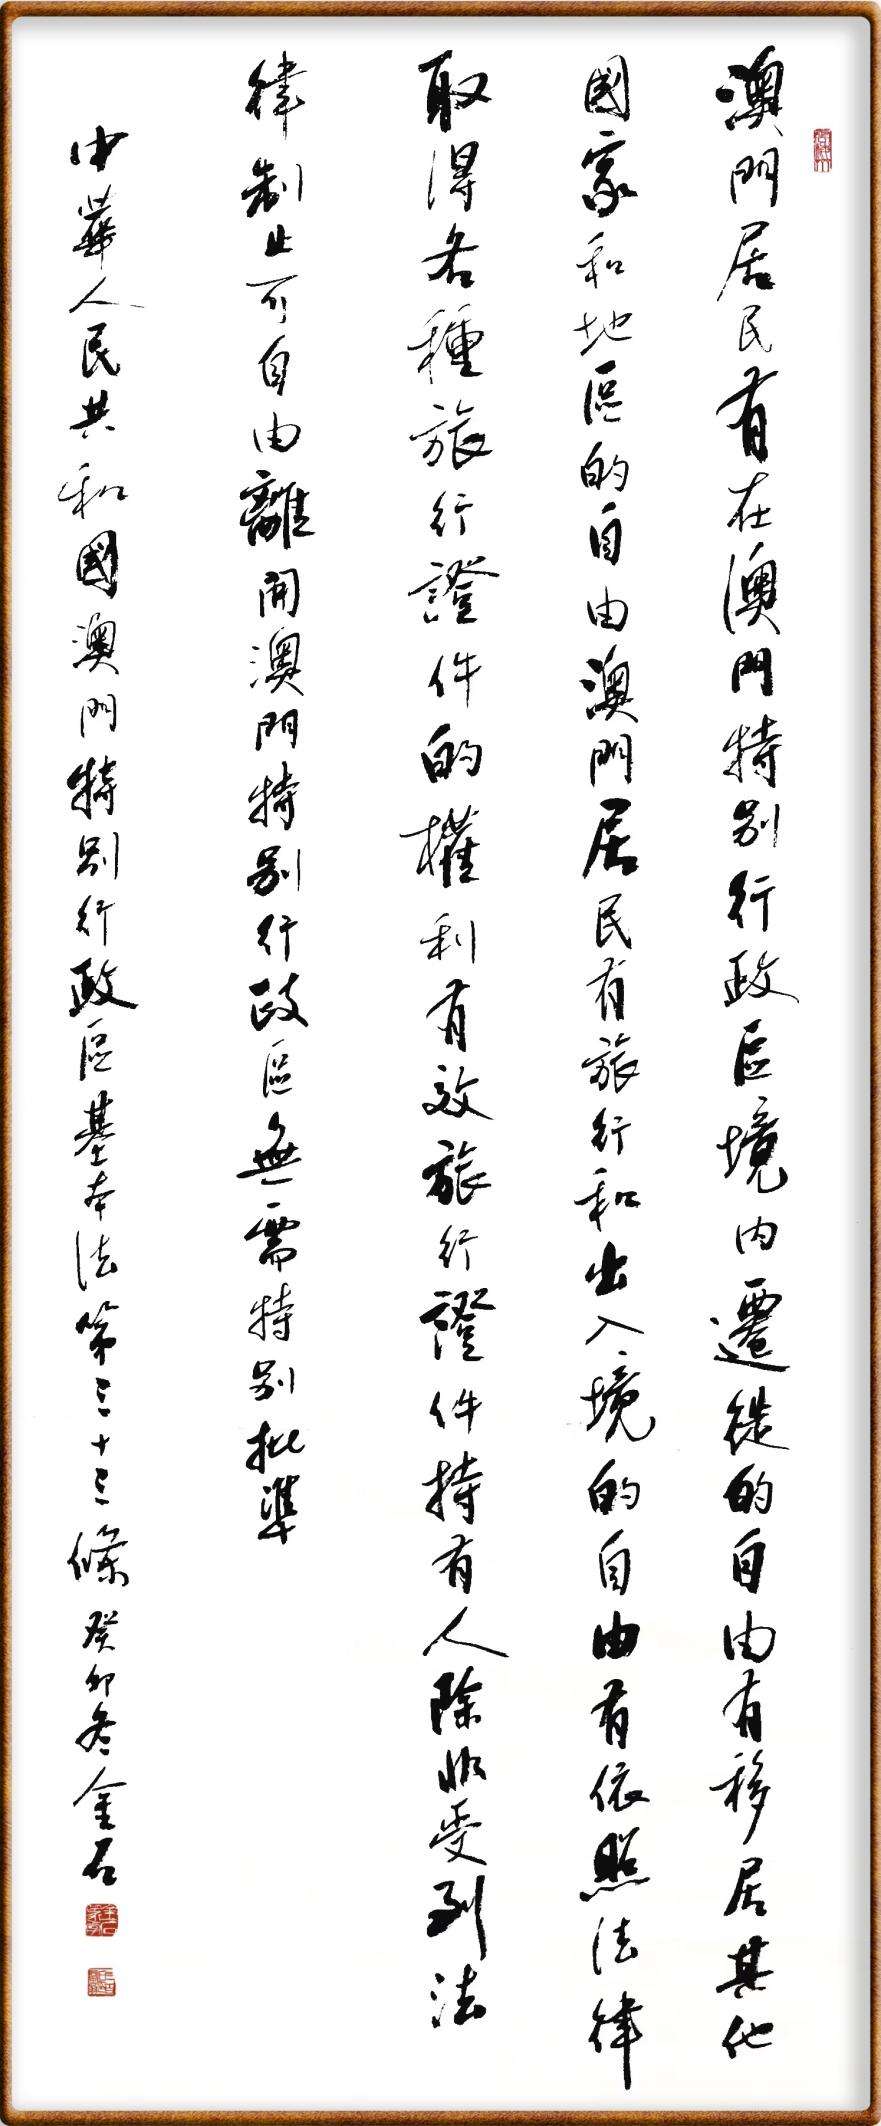 澳門居民有在澳門特別行政區境內遷徙的自由有移居其他
國家和地區的自由澳門居民有旅行和出入境的自由有依照法律
取得各種旅行證件的權利有效旅行證件持有人除非受到法
律制止可自由離開澳門特別行政區無需特別批準
中華人民共和國澳門特別行政區基本法第三十三條癸卯冬金石